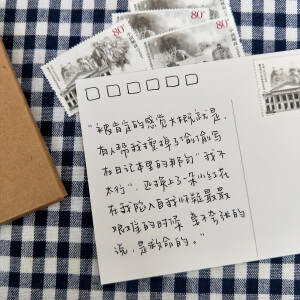 80分
80分
80分
"被肯定的感觉大概就是,
有人帮我撕掉了偷偷写
在日记本里的那句"我不
太行", 还换上了一朵小红花
在我陷入自我怀疑最最
艰难的时候 毫不夸张的
说,是救命的。"